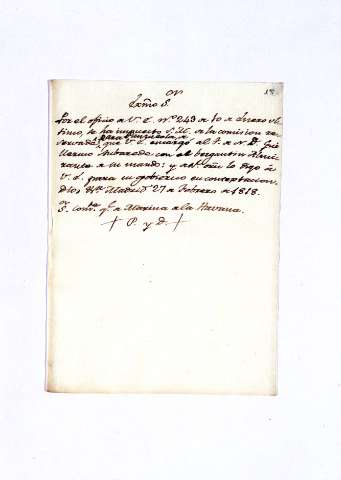 18
Exmo S.
Por el oficio de V. E. nº 249 de 10 de Enero ul-
timo, se ha impuesto S. M. de la comision re-
servada para
que V. E. encargó al T. de N. D. Gui
llermo con el bergantin Almi
rante de su mando: y de Rl. orn lo digo a
V. E. para su gobierno en contestacion.
Dios &a. Madrid 27 de Febrero de 1818.
Sr. Comte. gl. de Marina de la Havana.
P. y D.